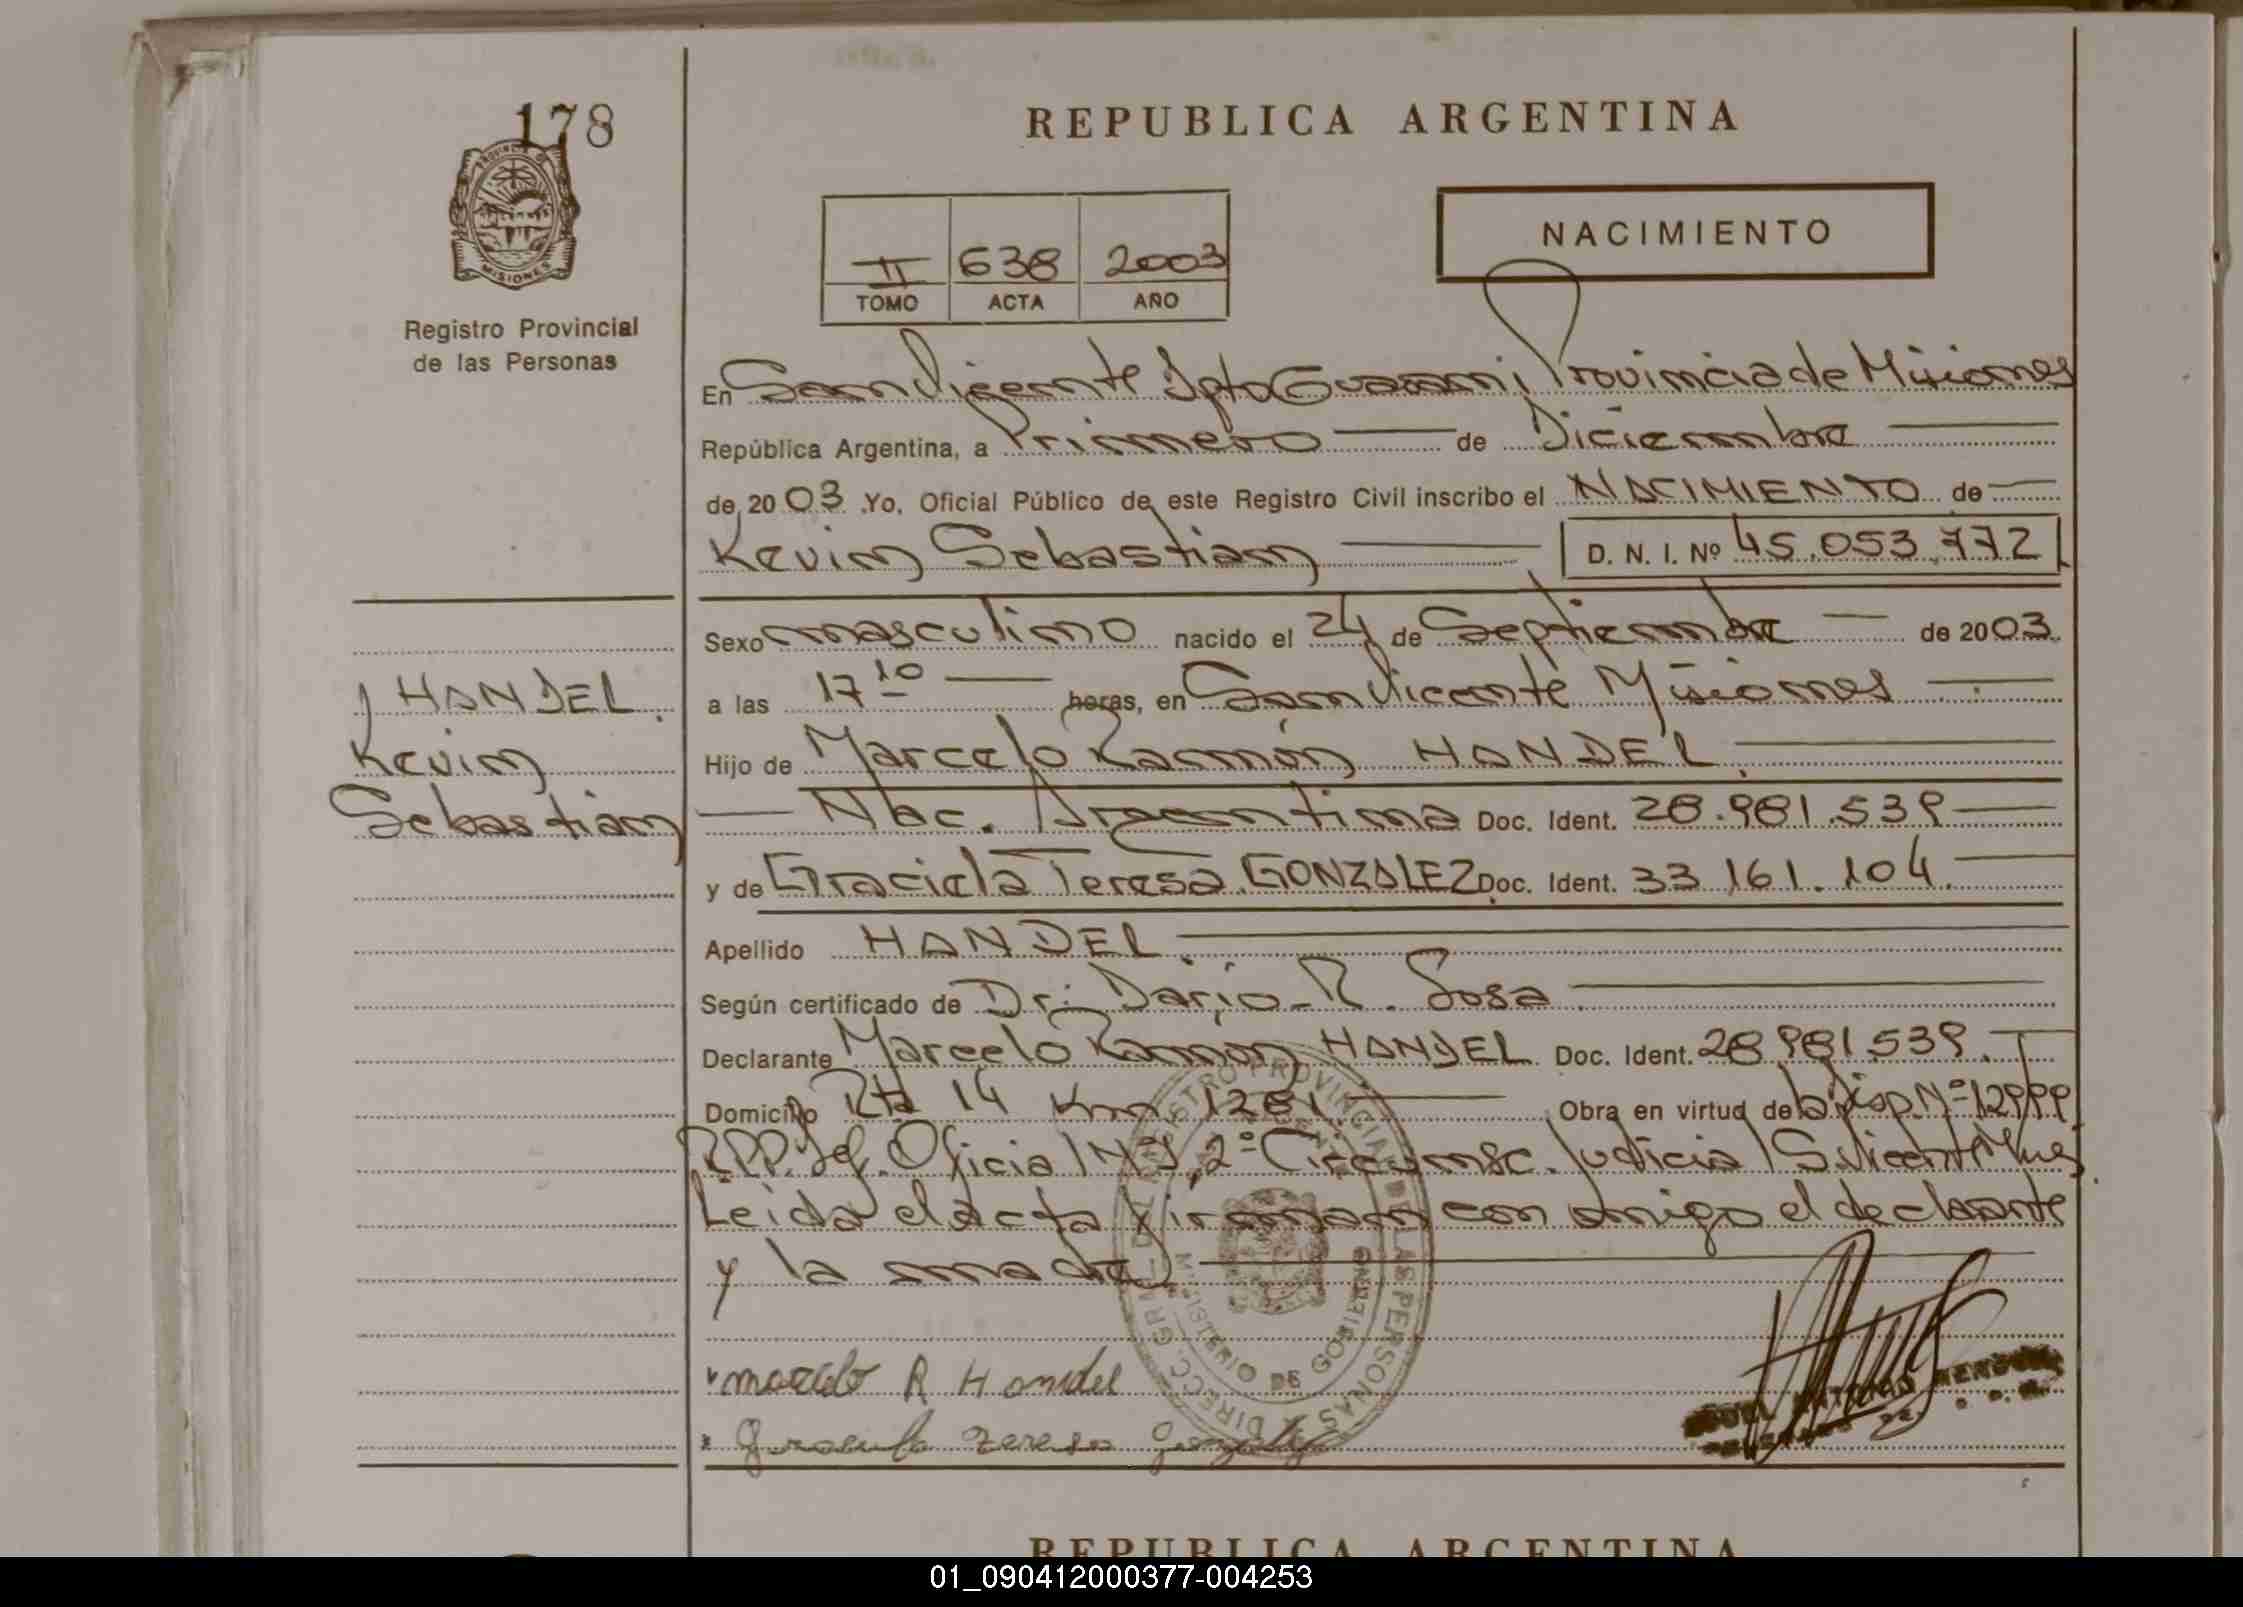 178
REPUBLICA ARGENTINA
PROVINCIA DE
MISIONES
Registro Provincial
de las Personas
II 638 2003
TOMO ACTA AÑO
NACIMIENTO
En San Vicente Dpto Guarani, Provincia de Misiones
República Argentina, a Primero de Diciembre
de 2003 Yo, Oficial Público de este Registro Civil inscribo el NACIMIENTO de
Kevin Sebastian D. N. I. Nº 45.053.772
Sexo masculino nacido el 24 de Septiembre de 2003
a las 17 10 horas, en San Vicente Misiones
HANDEL
Kevin
Sebastian
Hijo de Marcelo Ramón HANDEL
Nac. Argentina Doc. Ident. 28.981.539
y de Graciela Teresa GONZALEZ Doc. Ident. 33 161.104
Apellido HANDEL
Según certificado de Dr. Dario R. Sosa
Declarante Marcelo Ramón HANDEL Doc. Ident. 28.981.539
Domicilio Rta 14 Km 1281 Obra en virtud de
Oficial 2º Judicial
Leida el acta firman con migo el declarante
y la madre
marcelo R Handel
Teresa
REGISTRO PROVINCIAL DE LAS PERSONAS
DIRECC. GRAL.
MINISTERIO DE GOBIERNO
REPUBLICA ARGENTINA
01_090412000377-004253